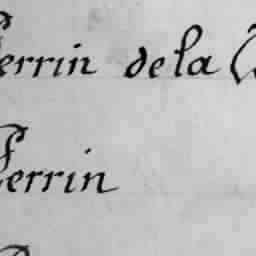 Perrin de la
Perrin